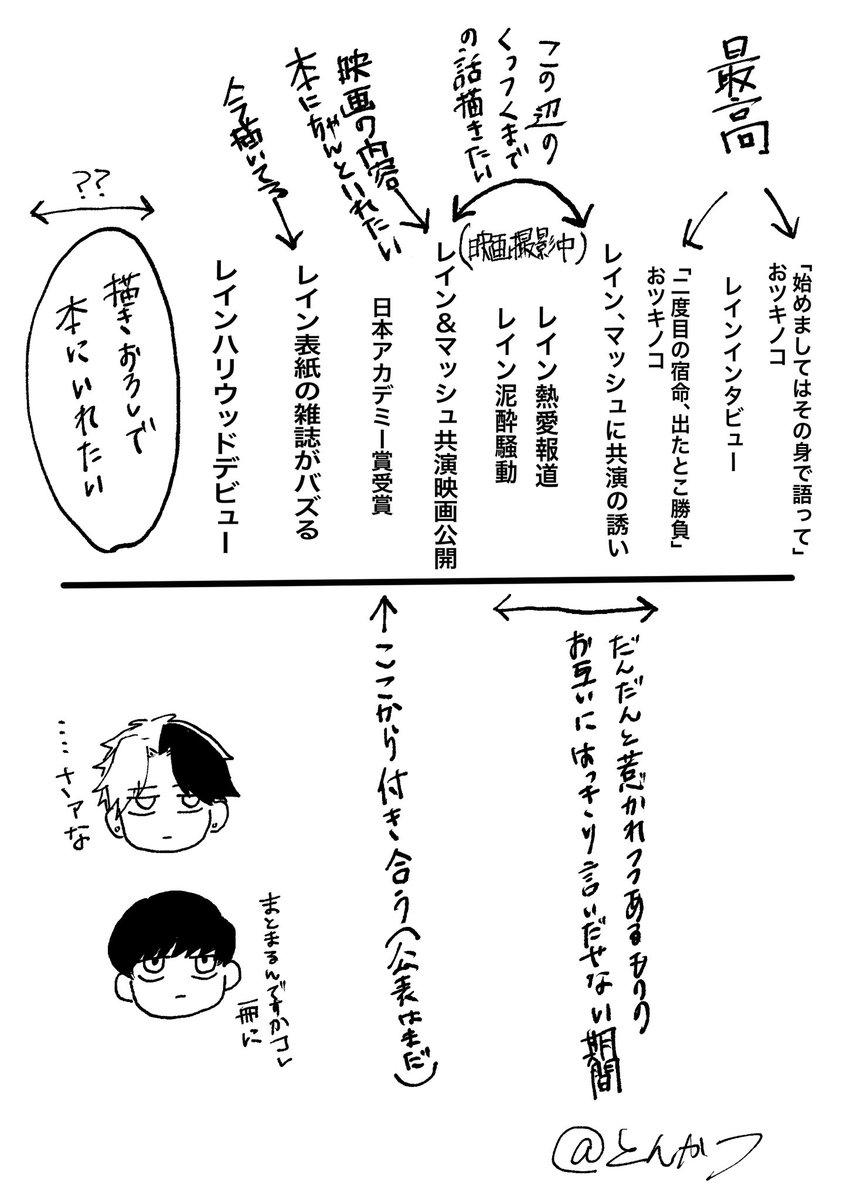 最高
「始めましてはその身で語って」
おツキノコ
レインインタビュー
「二度目の宿命、出たとこ勝負」
おツキノコ
レイン、マッシュに共演の誘い
この辺の
くっつくまで
の話描きたい
(映画撮影中)
レイン熱愛報道
レイン泥酔騒動
レイン&マッシュ共演映画公開
映画の内容
本にちゃんといれたい
日本アカデミー賞受賞
今描いてる
レイン表紙の雑誌がバズる
レインハリウッドデビュー
??
描きおろしで
本にいれたい
だんだんと惹かれつつあるものの
お互いにはっきり言いださない期間
ここから付き合う(公表はまだ)
……さァな
まとまるんですかコレ
一冊に
@とんかつ